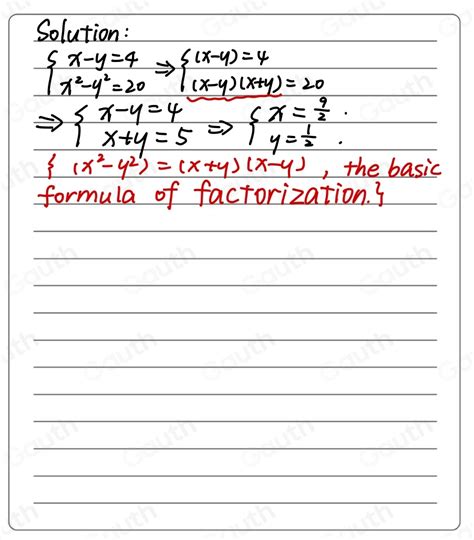 Solution:
{ x-y=4 ⇒ { (x-y)=4
x²-y²=20 (x-y)(x+y)=20
⇒ { x-y=4 ⇒ { x=9/2 .
x+y=5 y=1/2 .
{ (x²-y²)=(x+y)(x-y) , the basic
formula of factorization.}
Gauth